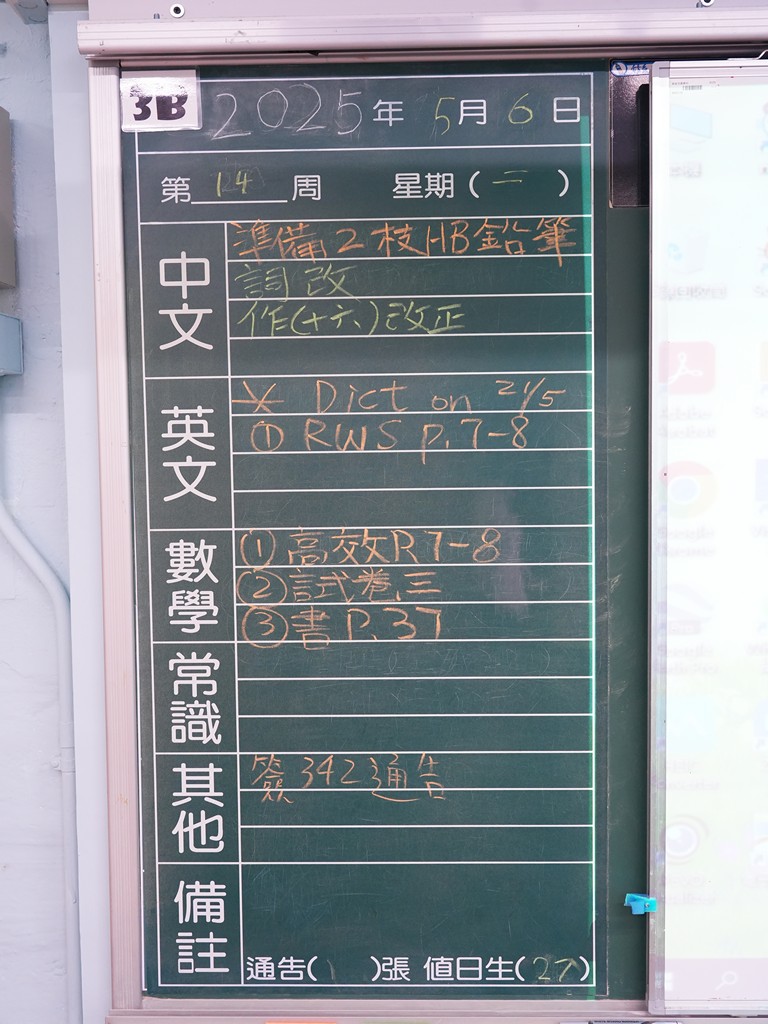 3B
2025年 5月 6日
第 14 周 星期(二)
中文
準備2枝HB鉛筆
詞改
作(十六)改正
英文
* Dict on 21/5
① RWS p.7-8
數學
①高效P.7-8
②試卷三
③書P.37
常識
其他
簽342通告
備註
通告( )張 值日生(27)